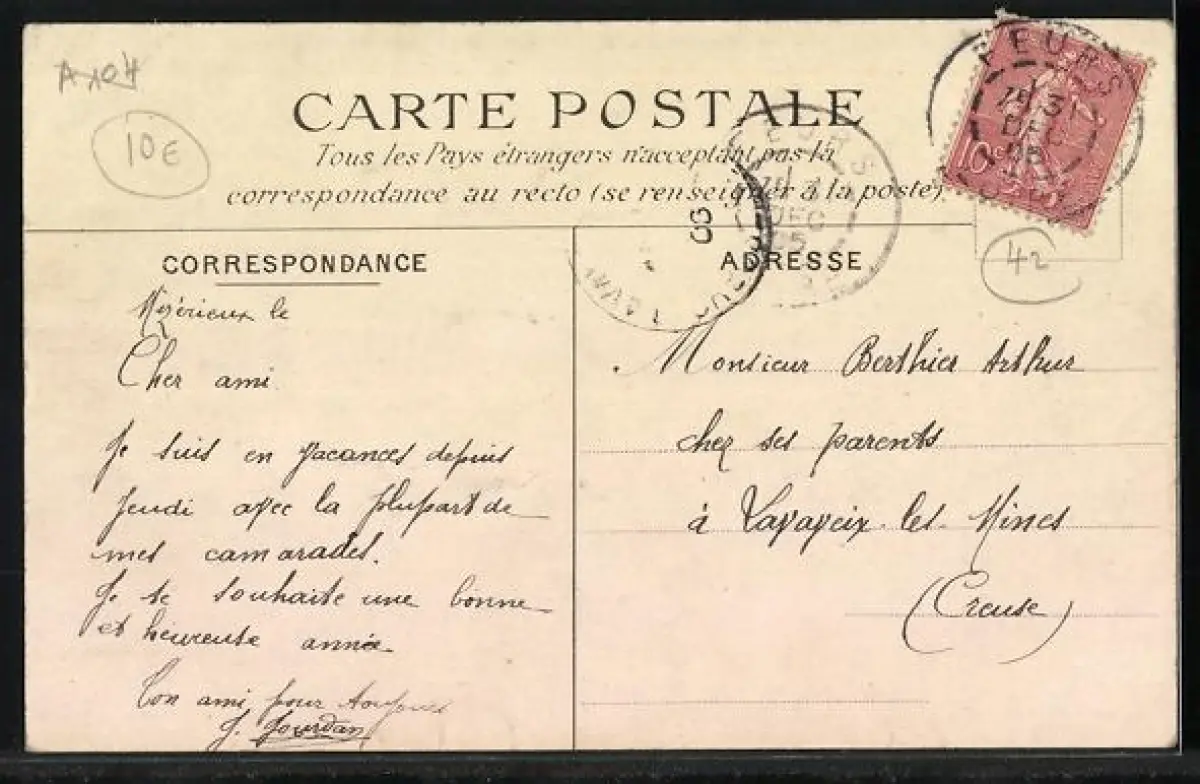 A104
10E
CARTE POSTALE
Tous les Pays étrangers n'acceptant pas la
correspondance au recto (se renseigner à la poste).
FEURS
13
DEC
05
10
FEURS
DEC
05
42
CORRESPONDANCE
Mizérieux le
Cher ami
Je suis en vacances depuis
jeudi avec la plupart de
mes camarades.
Je te souhaite une bonne
et heureuse année
Ton ami pour toujours
J. Jourdan
ADRESSE
Monsieur Berthier Arthur
chez ses parents
à Lavaveix-les-Mines
(Creuse)